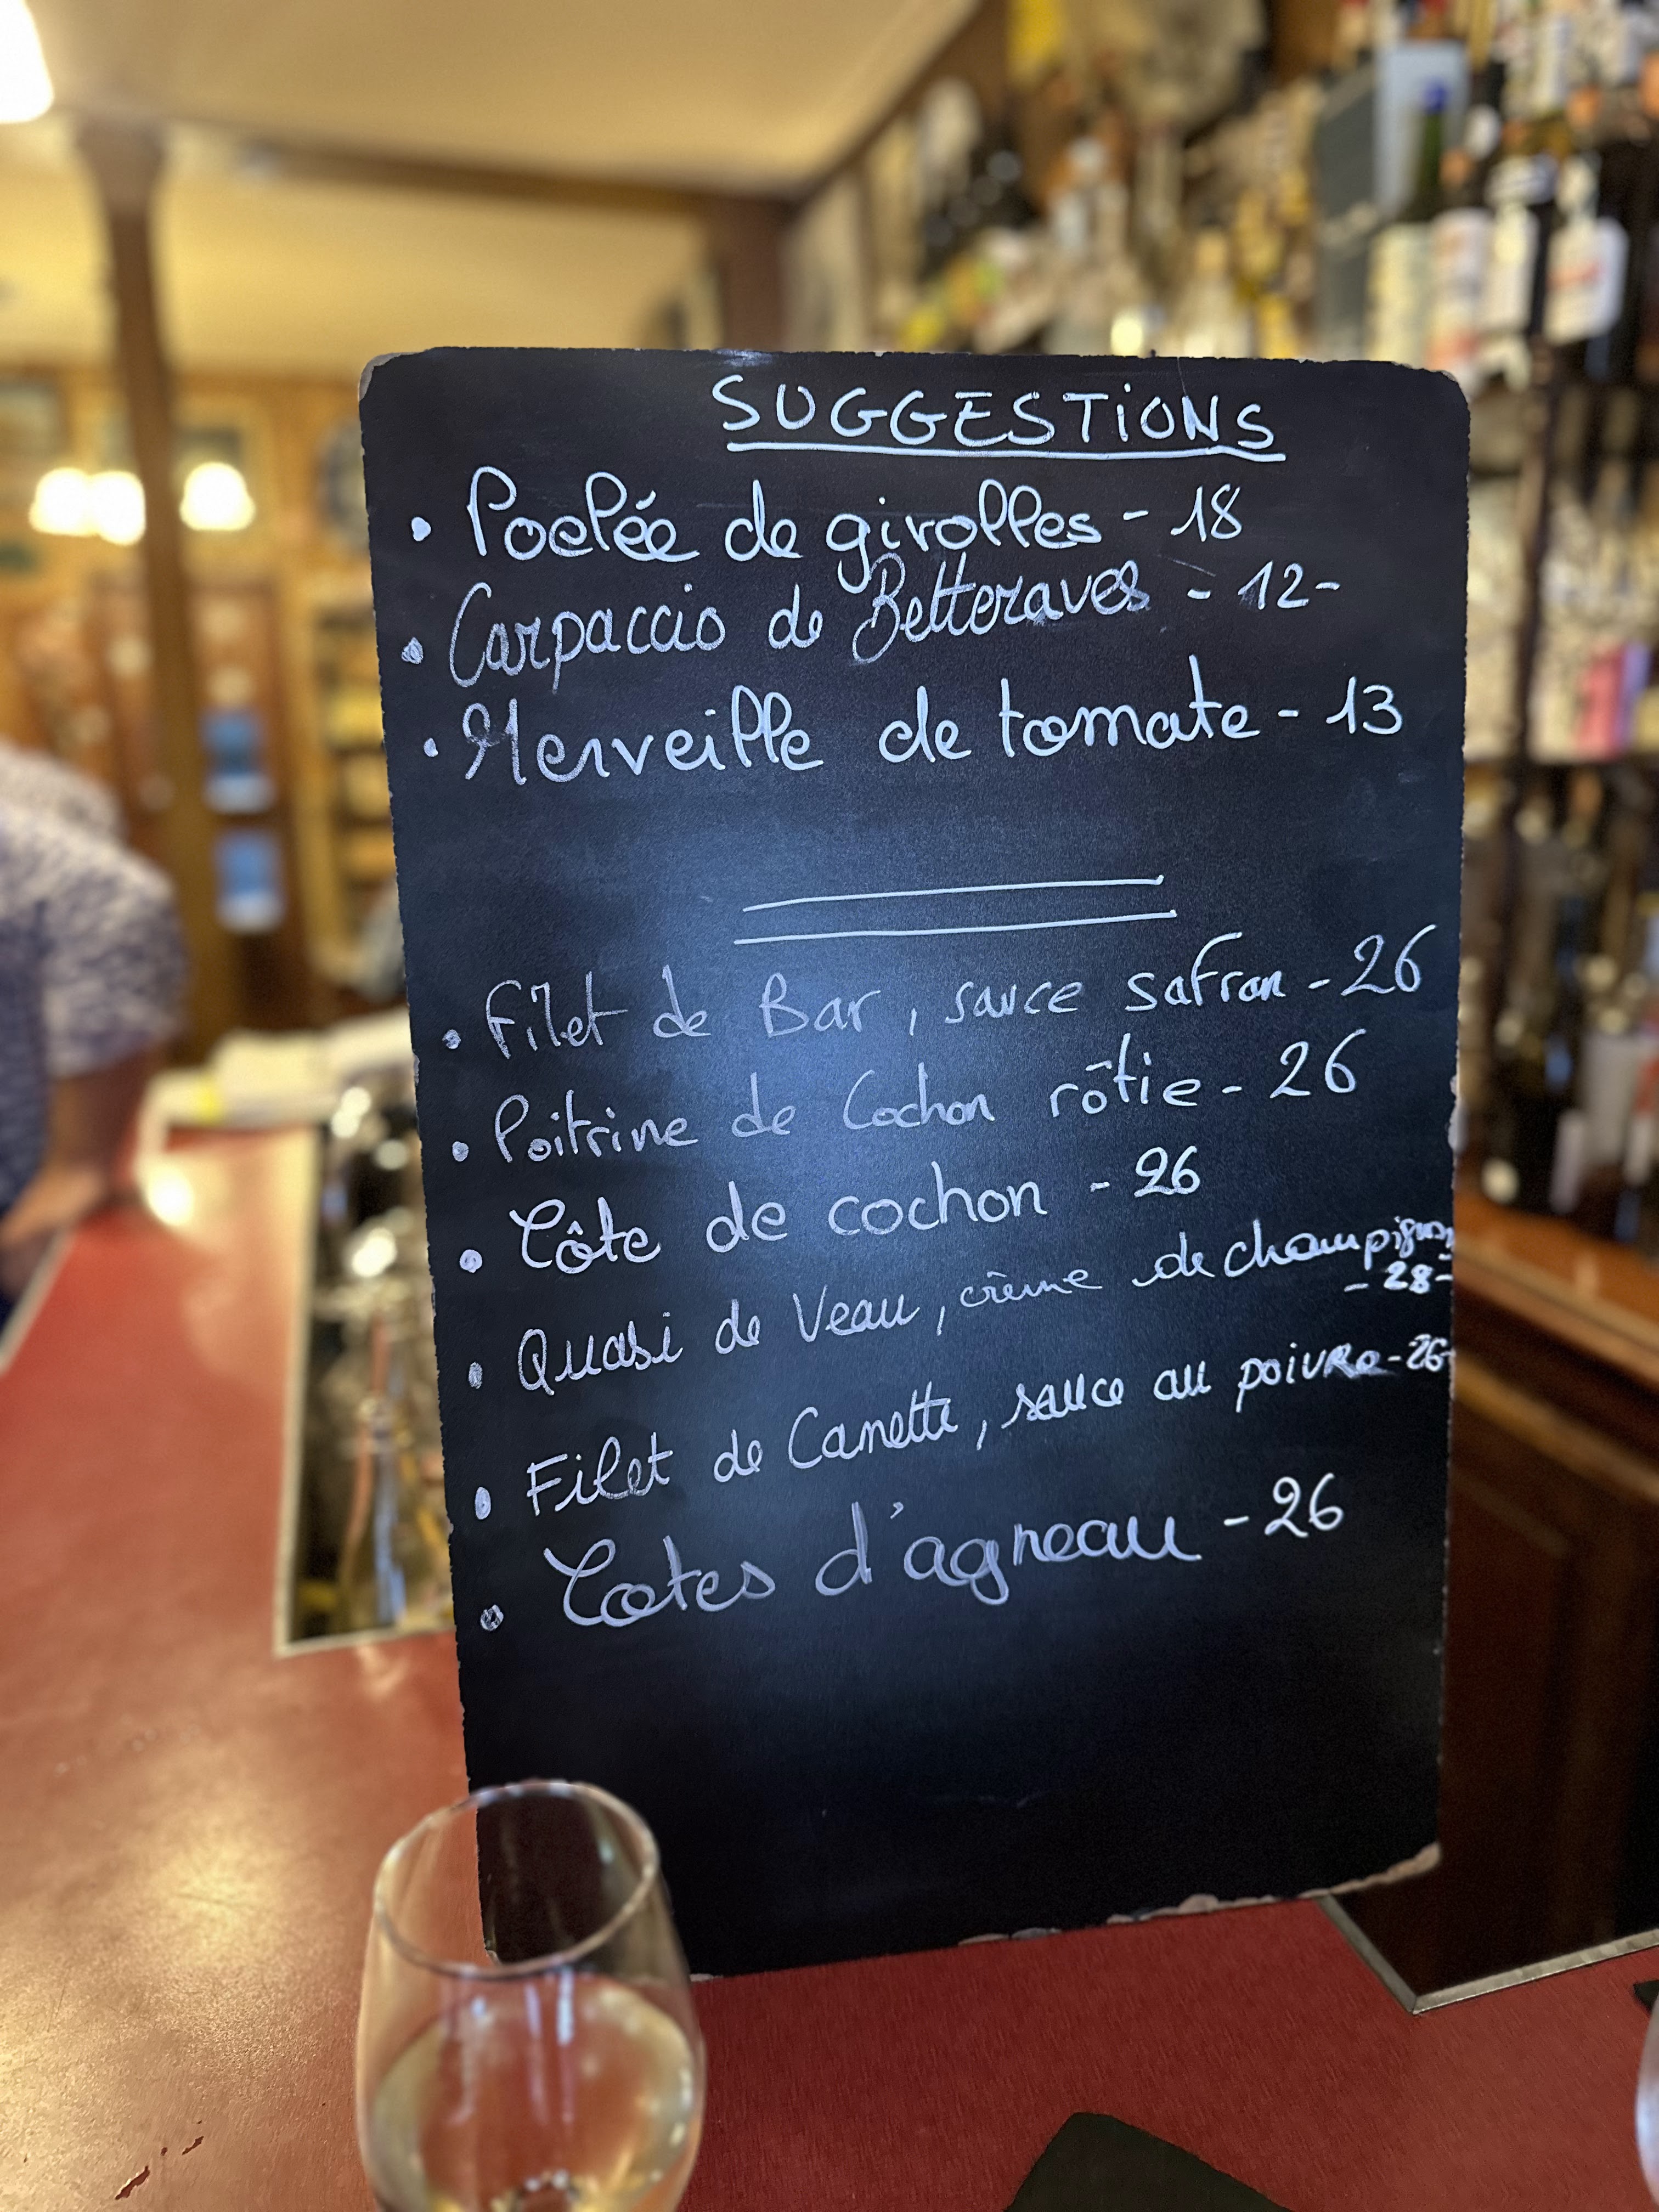 SUGGESTIONS
• Poelée de girolles - 18
• Carpaccio de Betteraves - 12-
• Merveille de tomate - 13
• Filet de Bar, sauce safran - 26
• Poitrine de Cochon rôtie - 26
• Côte de cochon - 26
• Quasi de Veau, crème de champignons
- 28-
• Filet de Canette, sauce au poivre - 26-
• Cotes d'agneau - 26